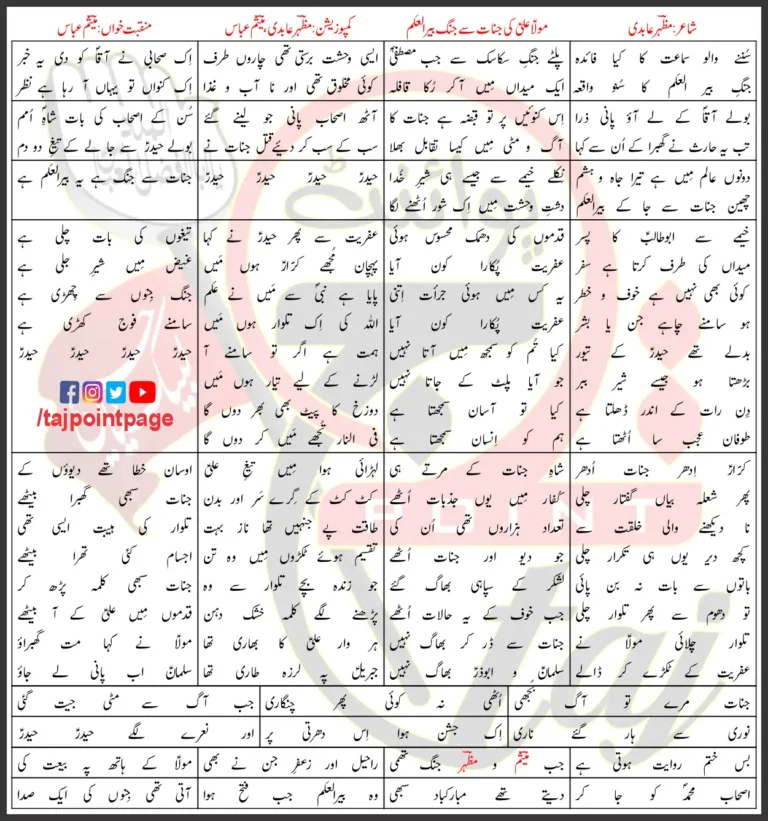 شاعر: مظہرؔ عابدی
مولا علیؑ کی جنات سے جنگ بیرالعلم
کمپوزیشن: مظہرؔ عابدی، میثمؔ عباس
منقبت خواں: میثمؔ عباس
سُننے والو سماعت کا کیا فائدہ
جنگِ بیر العلم کا سُنو واقعہ
پلٹے جنگِ سکاسک سے جب مصطفیٰؐ
ایک میداں میں آ کر رُکا قافلہ
ایسی وحشت برستی تھی چاروں طرف
کوئی مخلوق تھی اور نا آب و غذا
اِک صحابی نے آقاؐ کو دی یہ خبر
اِک کنواں تو یہاں آ رہا ہے نظر
بولے آقاؐ کے لے آؤ پانی ذرا
تب یہ حارث نے گھبرا کے اُن سے کہا
اِس کنوئیں پر تو قبضہ ہے جنات کا
آگ و مٹی میں کیسا تقابل بھلا
آٹھ اصحاب پانی جو لینے گئے
سب کے سب کر دیئے قتل جنات نے
سُن کے اصحاب کی بات شاہِؐ اُمم
بولے حیدرؑ سے جا لے کے تیغِ دو دم
دونوں عالم میں ہے تیرا جاہ و ہشم
چھین جنات سے جا کے بیرالعلم
نکلے خیمے سے جیسے ہی شیرِ خُدا
دشتِ وحشت میں اِک شور اُٹھنے لگا
حیدرؑ حیدرؑ حیدرؑ حیدرؑ
جنات سے جنگ ہے یہ بیرالعلم ہے
خیمے سے ابوطالبؑ کا پسر
میداں کی طرف کرتا ہے سفر
کوئی بھی نہیں ہے خوف و خطر
ہو سامنے چاہے جن یا بشر
بدلے تھے حیدرؑ کے تیور
بڑھتا ہو جیسے شیرِ ببر
دِن رات کے اندر ڈھلتا ہے
طوفان عجب سا اُٹھتا ہے
قدموں کی دھمک محسوس ہوئی
عفریت پُکارا کون آیا
یہ کس میں ہوئی جرأت اِتنی
عفریت پُکارا کون آیا
کیا تُم کو سمجھ میں آتا نہیں
جو آیا پلٹ کے جاتا نہیں
کیا تو آسان سمجھتا ہے
ہم کو اِنسان سمجھتا ہے
عفریت سے پھر حیدرؑ نے کہا
پہچان مُجھے کرّارؑ ہوں مَیں
پایا ہے نبیؐ سے مَیں نے علم
اللہ کی اِک تلوار ہوں مَیں
ہمت ہے اگر تو سامنے آ
لڑنے کے لیے تیار ہوں مَیں
دوزخ کا پیٹ بھی بھر دوں گا
فی النار تُجھے مَیں کر دوں گا
تیغوں کی بات چلی ہے
غیض میں شیرِ جلی ہے
جنگ جنوں سے چھڑی ہے
سامنے فوج کھڑی ہے
حیدرؑ حیدرؑ حیدرؑ حیدرؑ
/tajpointpage
کرّارؑ اِدھر جنات اُدھر
پھر شعلہ بیاں گفتار چلی
نا دیکھنے والی خلقت سے
کچھ دیر یوں ہی تکرار چلی
باتوں سے بات نہ بن پائی
تو دھوم سے پھر تلوار چلی
تلوار چلائی مولاؑ نے
عفریت کے ٹکڑے کر ڈالے
شاہِ جنات کے مرتے ہی
کُفار میں یوں جذبات اُٹھے
تعداد ہزاروں تھی اُن کی
جو دیو اور جنات اُٹھے
لشکر کے سپاہی بھاگ گئے
جب خوف کے یہ حالات اُٹھے
جنات سے ڈر کر بھاگ نہیں
سلمانؑ و ابوذرؑ بھاگ نہیں
لہرائی ہوا میں تیغِ علیؑ
کٹ کٹ کے گِرے سَر اور بدن
طاقت پے جنہیں تھا ناز بہت
تقسیم ہوئے ٹکڑوں میں وہ تن
جو زندہ بچے تلوار سے وہ
پڑھنے لگے کلمہ خُشک دہن
ہر وار علیؑ کا بھاری تھا
جبریلؑ پہ لرزہ طاری تھا
اوسان خطا تھے دیوؤں کے
جنات سبھی گھبرا بیٹھے
تلوار کی ہیبت ایسی تھی
اجسام کئی تھرا بیٹھے
جنات سبھی کلمہ پڑھ کر
قدموں میں علیؑ کے آ بیٹھے
مولاؑ نے کہا مت گھبراؤ
سلمانؑ اب پانی لے جاؤ
جنات مرے تو آگ بُجھی
اُٹھی نہ کوئی پھر چنگاری
جب آگ سے مٹی جیت گئی
نوری سے ہار گئے ناری
اِک جشن ہوا اِس دھرتی پر
اور نعرے لگے حیدرؑ حیدرؑ
بس ختم روایت ہوتی ہے
جب میثمؔ و مظہرؔ جنگ تھمی
راحیل اور زعفرِ جن نے بھی
مولاؑ کے ہاتھ پہ بیعت کی
اصحابِ محمدؐ کو جا کر
دیتے تھے مبارکباد سبھی
وہ بیرالعلم جب فتح ہوا
آتی تھی جِنوں کی ایک صدا